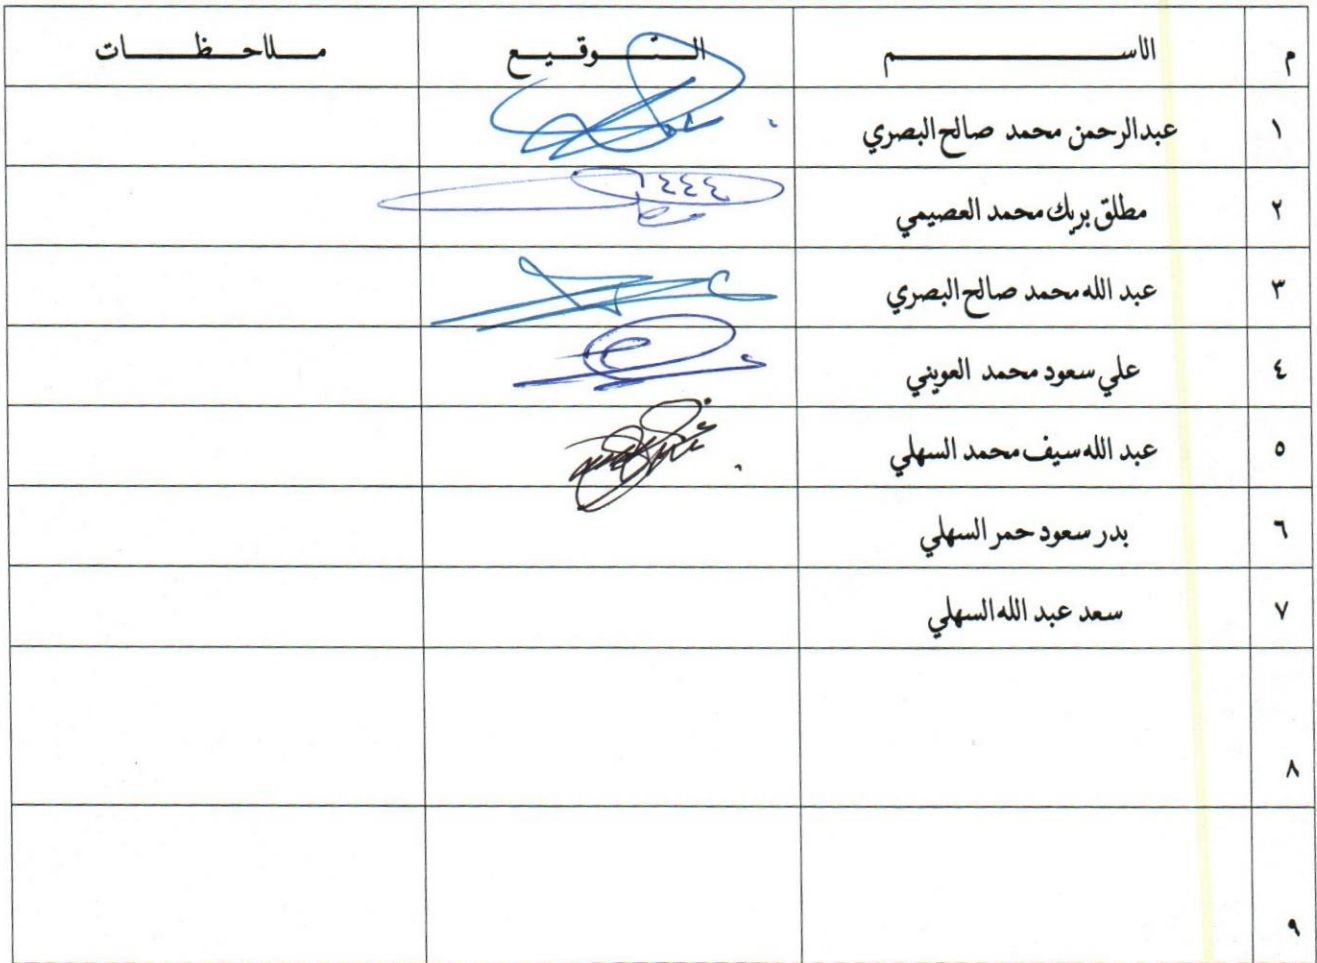 م الاسم التوقيع ملاحظات
١ عبدالرحمن محمد صالح البصري
٢ مطلق بريك محمد العصيمي ١٤٤٤
٣ عبد الله محمد صالح البصري
٤ علي سعود محمد العويني
٥ عبد الله سيف محمد السهلي
٦ بدر سعود حمر السهلي
٧ سعد عبد الله السهلي
٨
٩